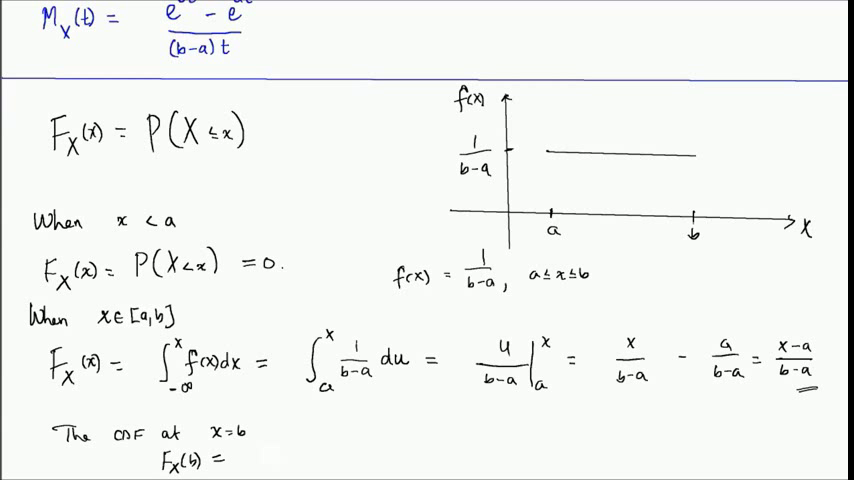 M_X(t) = (e - e) / (b-a)t
F_X(x) = P(X ≤ x)
f(x)
1/(b-a)
a
b
x
When x < a
F_X(x) = P(X < x) = 0.
f(x) = 1/(b-a), a ≤ x ≤ b
When x ∈ [a,b]
F_X(x) = ∫_{-∞}^{x} f(x)dx = ∫_{a}^{x} 1/(b-a) du = u/(b-a) |_{a}^{x} = x/(b-a) - a/(b-a) = (x-a)/(b-a)
The CDF at x=b
F_X(b) =